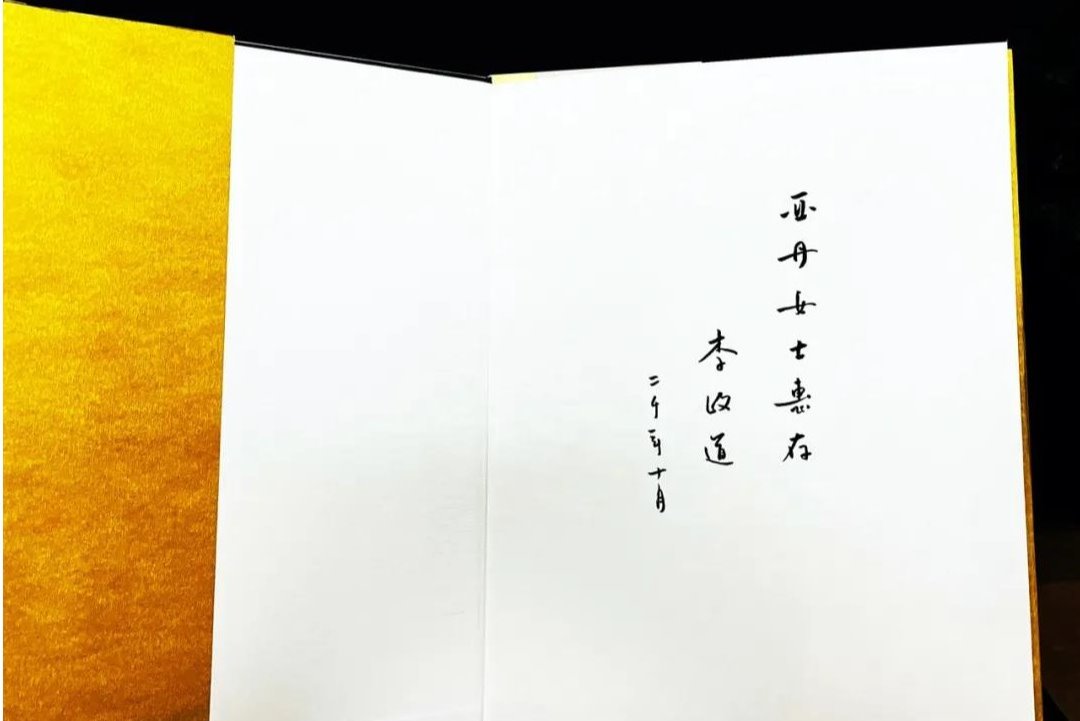 亚丹女士惠存
李政道
二千三年十月